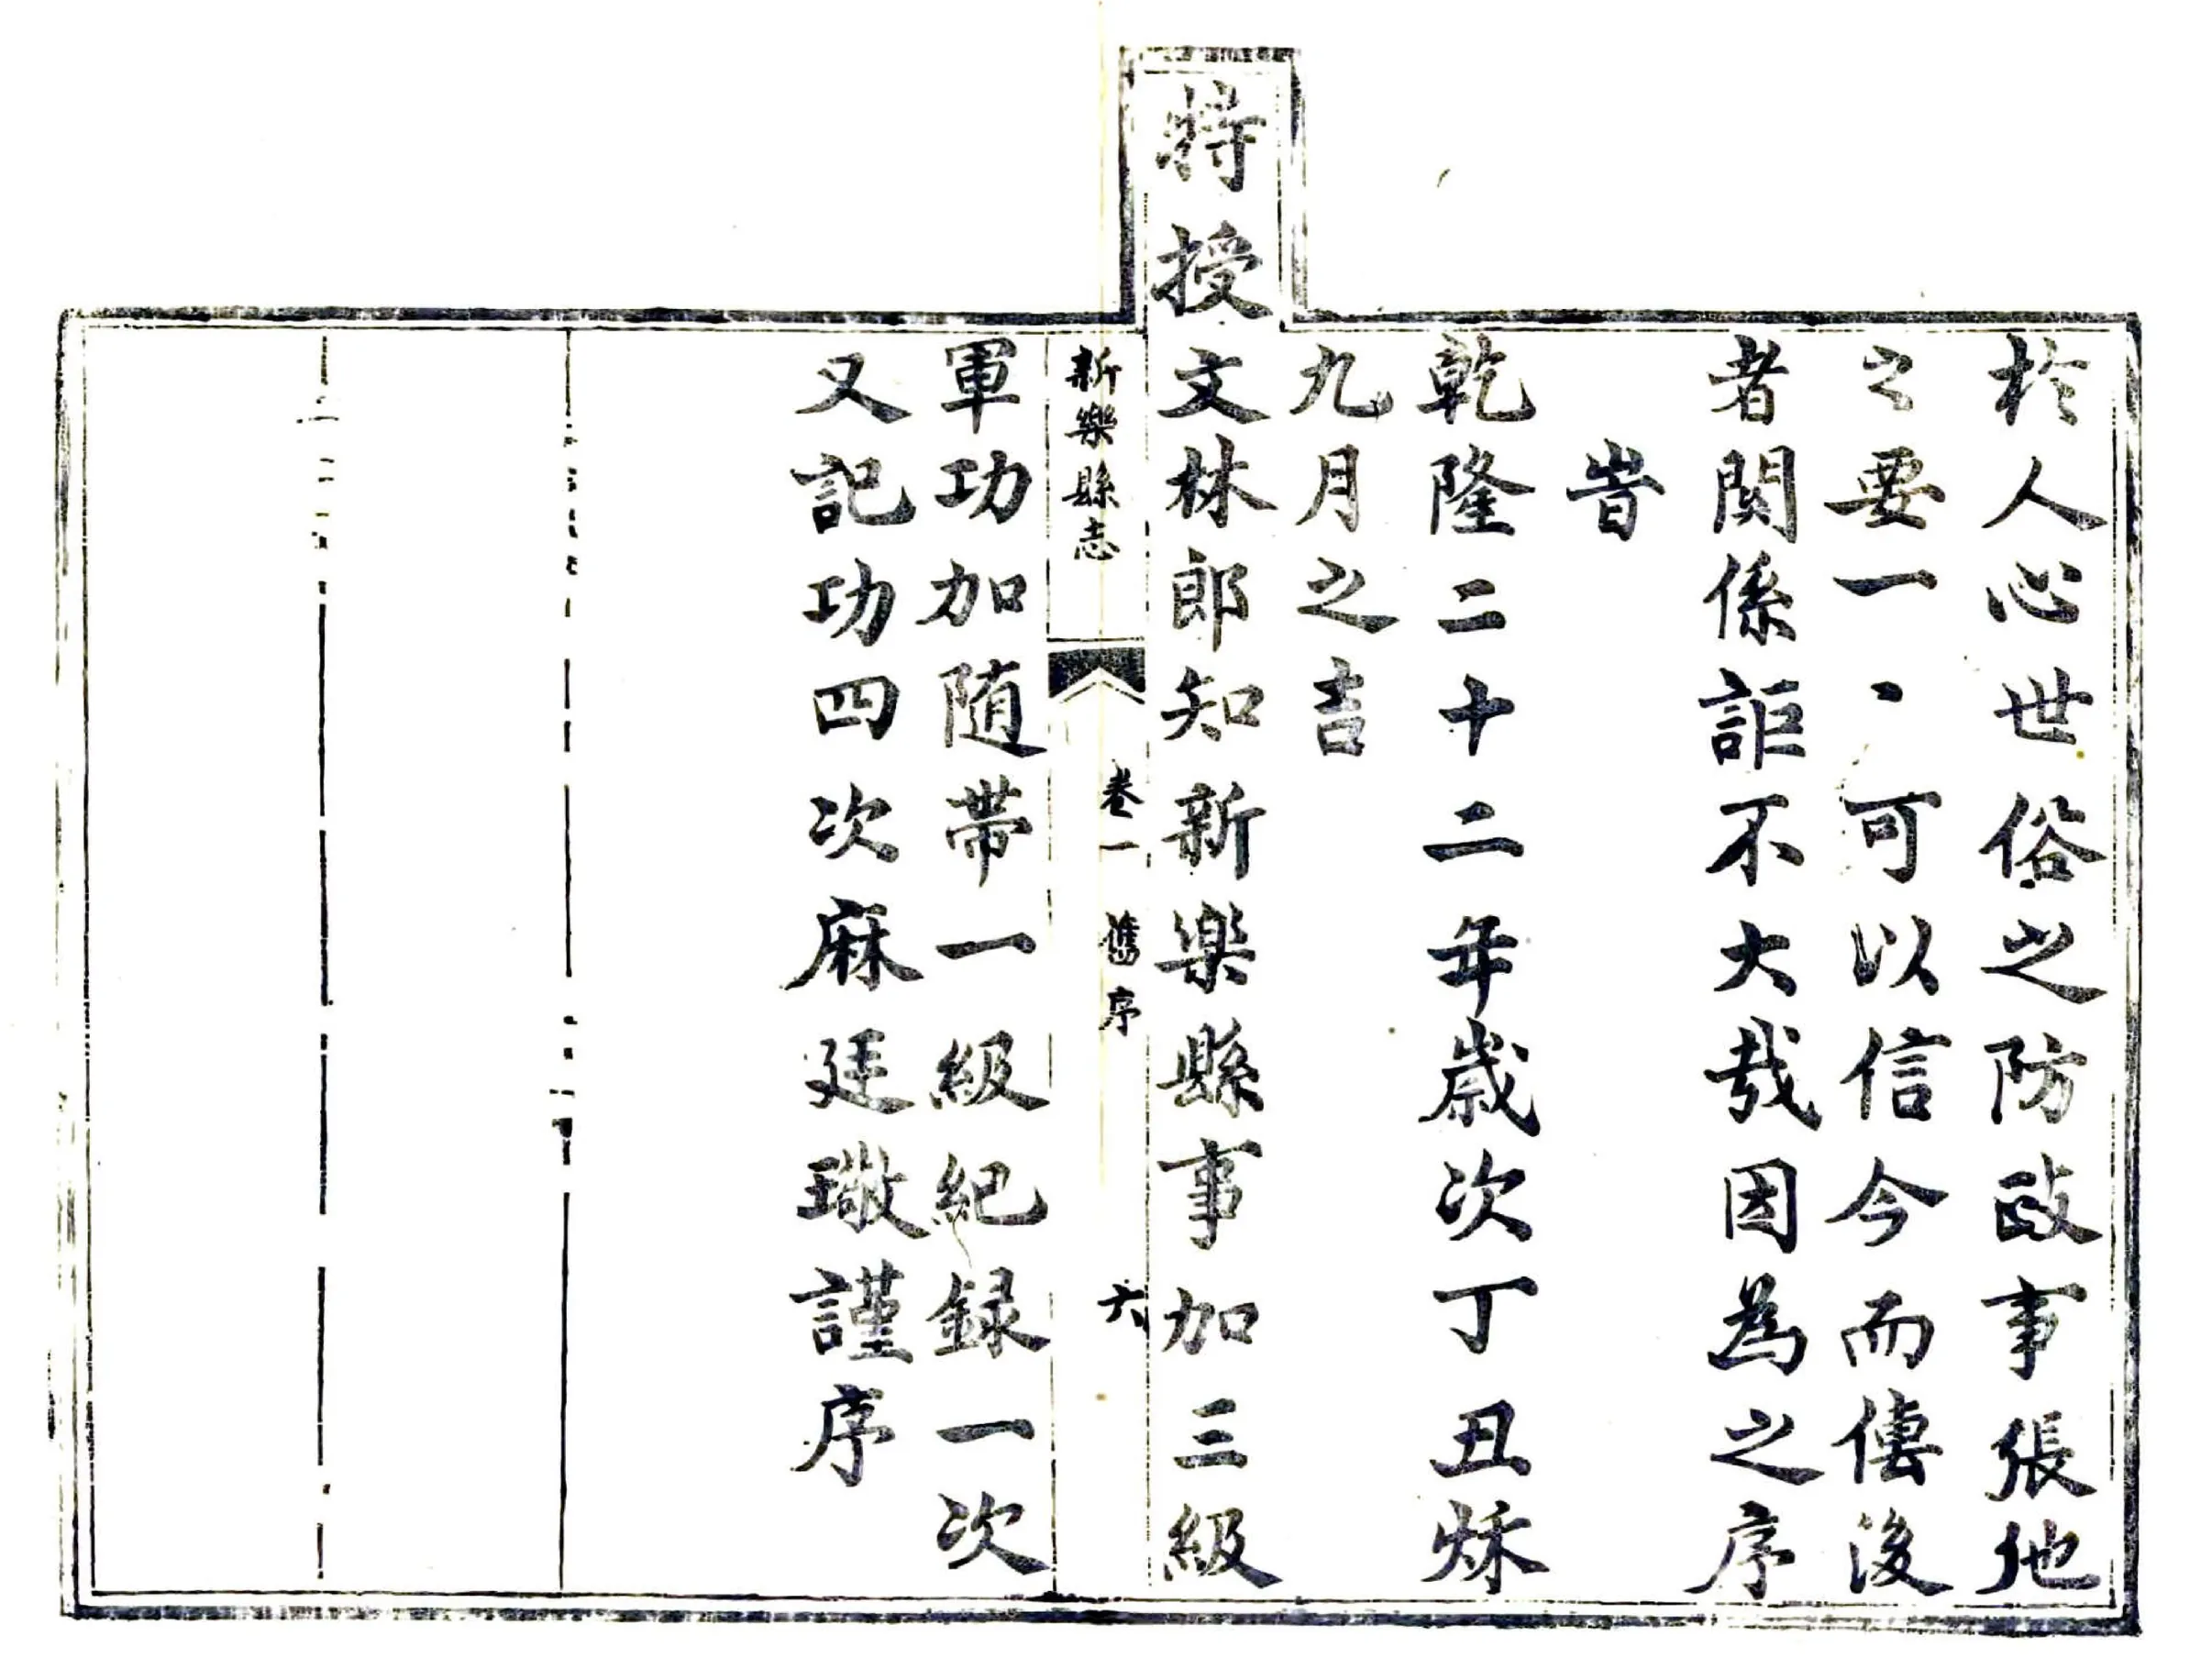 於人心世俗之防政事張弛
之要一、可以信今而傳後
者関係詎不大哉因為之序
旹
乾隆二十二年歲次丁丑秌
九月之吉
特授文林郎知新樂縣事加三級
新樂縣志 卷一 舊序 六
軍功加随帶一級紀録一次
又記功四次麻廷璥謹序